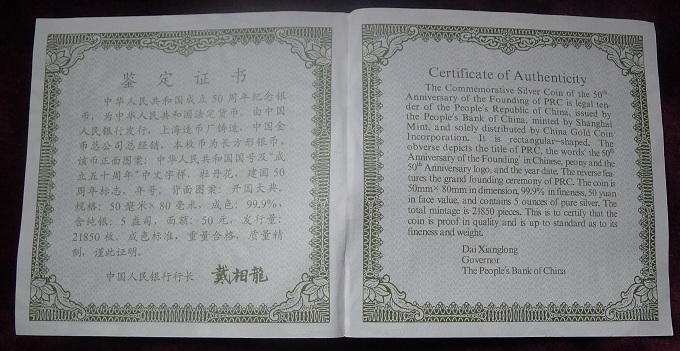 鉴定证书
中华人民共和国成立50周年纪念银
币，为中华人民共和国法定货币。由中国
人民银行发行，上海造币厂铸造，中国金
币总公司总经销。本枚币为长方形银币，
该币正面图案：中华人民共和国国号及“成
立五十周年”中文字样，牡丹花，建国50
周年标志，年号。背面图案：开国大典。
规格：50毫米×80毫米，成色：99.9%，
含纯银：5盎司，面额：50元，发行量：
21850枚。成色标准，重量合格，质量精
制，谨此证明。
中国人民银行行长 戴相龍
Certificate of Authenticity
The Commemorative Silver Coin of the 50th
Anniversary of the Founding of PRC is legal ten-
der of the People's Republic of China, issued by
the People's Bank of China, minted by Shanghai
Mint, and solely distributed by China Gold Coin
Incorporation. It is rectangular-shaped. The
obverse depicts the title of PRC, the words' the 50th
Anniversary of the Founding' in Chinese, peony and the
50th Anniversary logo, and the year date. The reverse fea-
tures the grand founding ceremony of PRC. The coin is
50mm× 80mm in dimension, 99.9% in fineness, 50 yuan
in face value, and contains 5 ounces of pure silver. The
total mintage is 21850 pieces. This is to certify that the
coin is proof in quality and is up to standard as to its
fineness and weight.
Dai Xianglong
Governor
The People's Bank of China